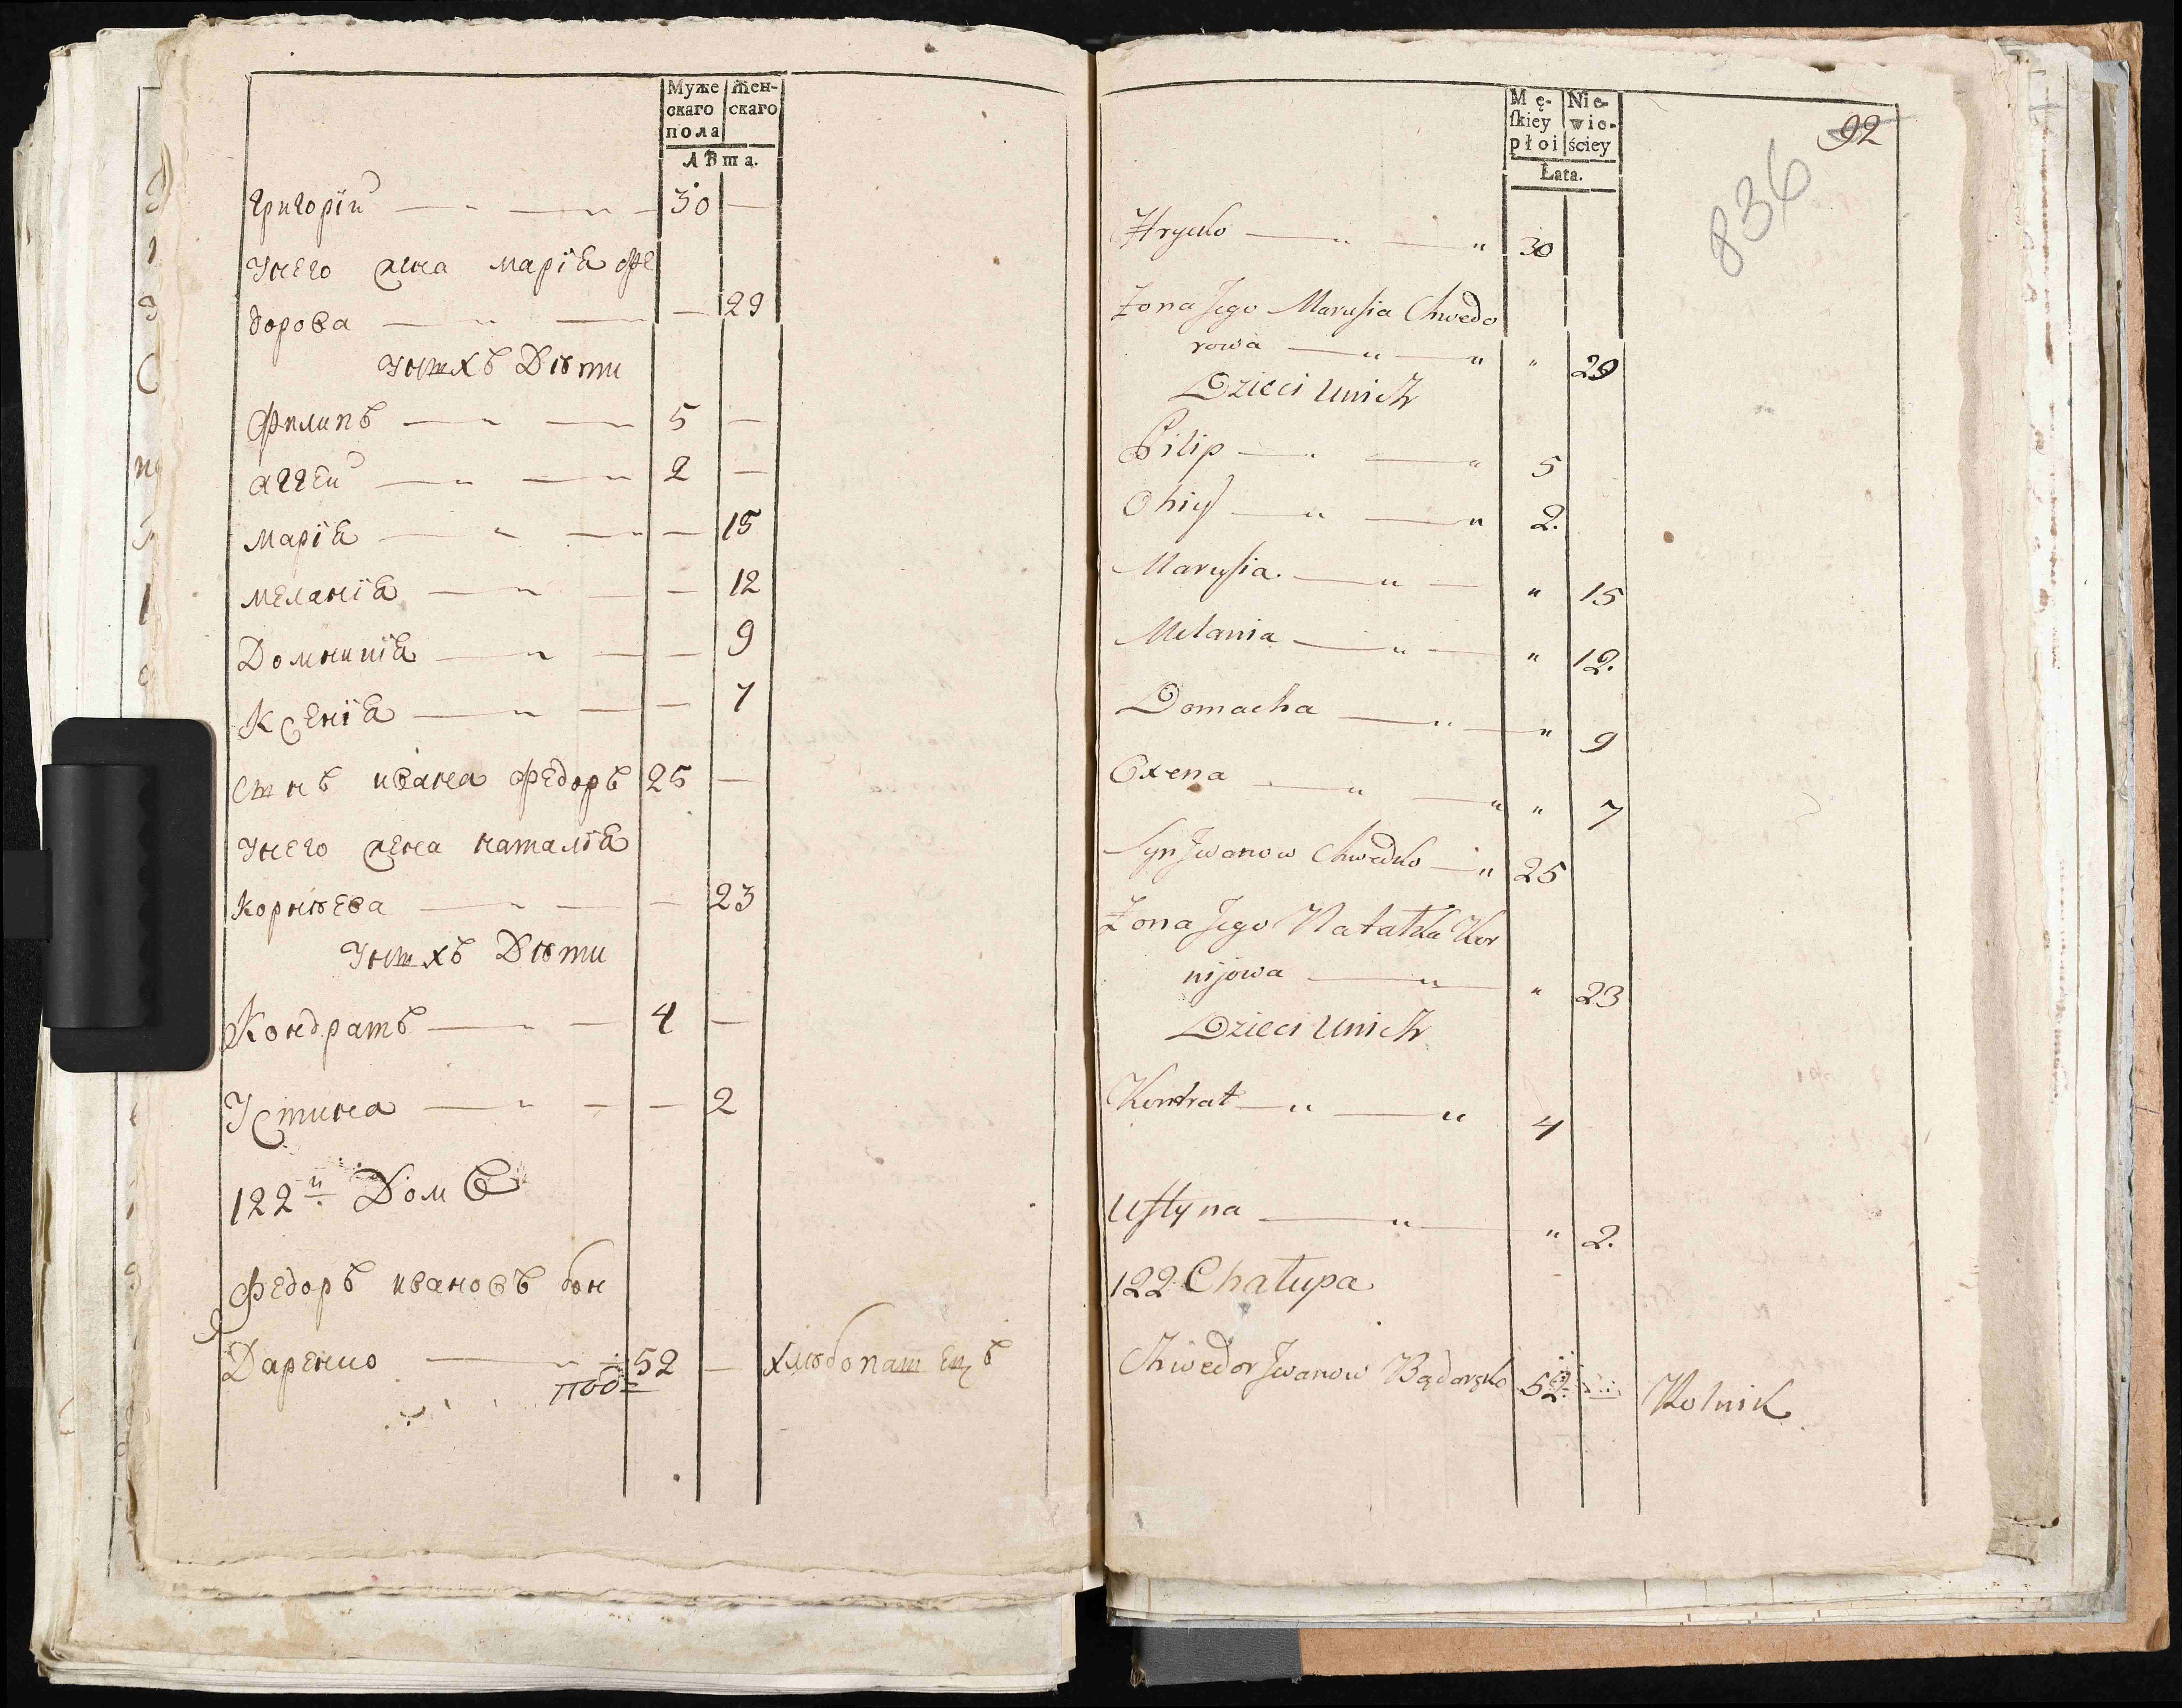 Муже Жен-
скаго скаго
пола
Лѣта.
Григорїй 30 —
Унего жена марїя фе
дорова — 29
Унихъ Дѣти
Филипъ 5 —
аггей 2 —
марїя — 15
меланїя — 12
Домникїя — 9
Ксенїя — 7
Сынъ ивана федоръ 25 —
Унего жена наталїя
корнѣева — 23
Унихъ Дѣти
Кондратъ 4 —
Устина — 2
122й Домъ
Федоръ ивановъ бон
Даренко 52 — хлѣбопашецъ
под
Mę- Nie-
ſkiey wie-
płci ściey
Lata.
92
836
Hrycko " 30
Zona Jego Maruſia Chwedo
rowa " 29
Dzieci Unich
Pilip 5
Ohiy 2.
Maruſia " 15
Melania " 12.
Domacha " 9
Oxena " 7
Syn Jwanow Chwedko 25
Zona Jego Natałka Kor
nijowa " 23
Dzieci Unich
Kontrat 4
Uſtyna " 2.
122 Chałupa
Chwedor Jwanow Bądaręko 52 Rolnik